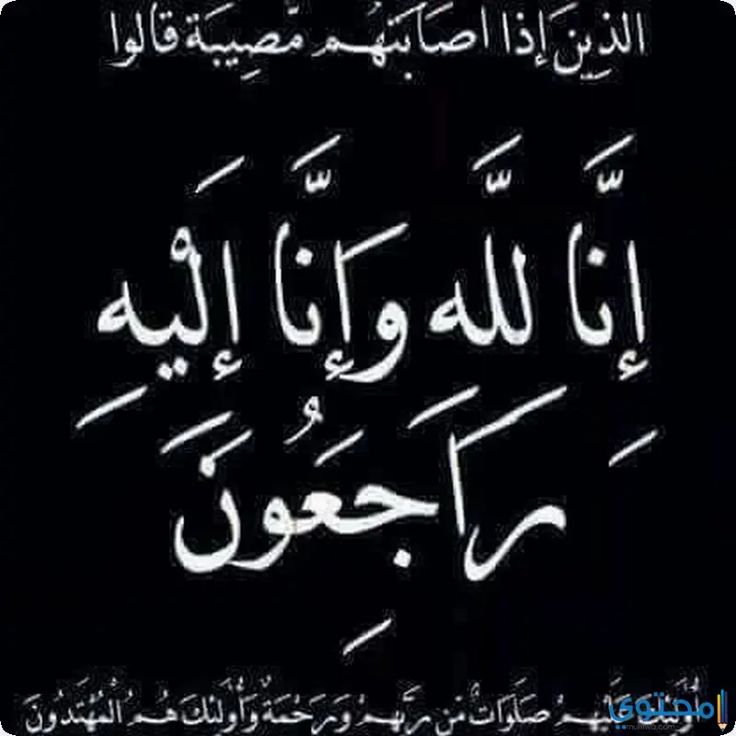 الذِينَ إِذَا اصَابَتهُم مُّصِيبَة قَالوا
إِنَّا لِلَّه وَإِنَّا إِلَيْهِ
رَاجَعُونَ
أُولَئِكَ عَلَيْهِمْ صَلَوَاتٌ مِّن رَّبِّهِمْ وَرَحْمَةٌ وَأُولَئِكَ هُمُ الْمُهْتَدُونَ
محتوى
muhtwa.com